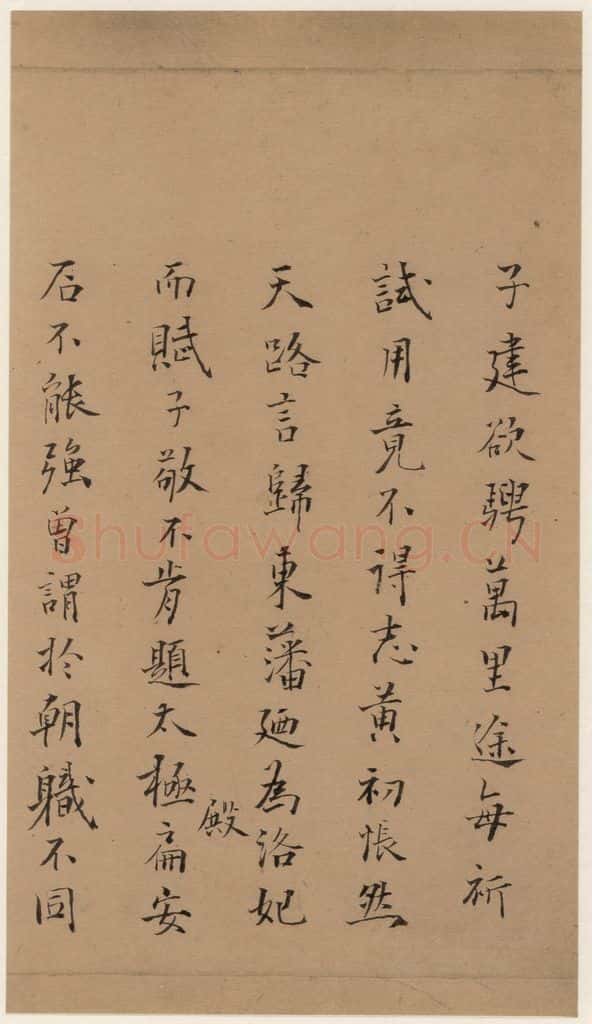 子建欲騁萬里途每祈
試用竟不得志黄初悵然
天路言歸東藩廼為洛妃
而賦子敬不肯題太極殿扁安
石不能強曾謂於朝軄不同
Shufawang.CN